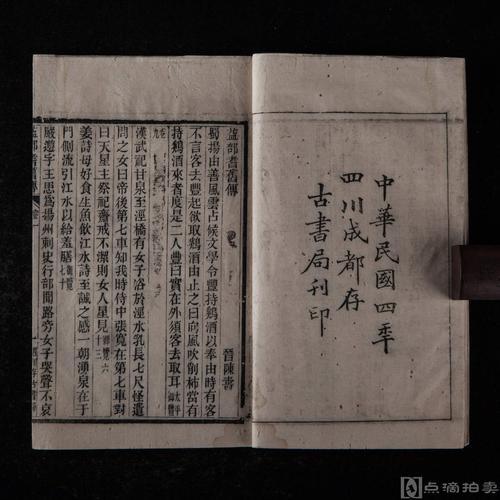 中華民國四年
四川成都存
古書局刊印
益部耆舊傳
晉陳壽
蜀揚由善風雲占候文學令豐持鷄酒以奉由時有客
不言客去豐起欲取鷄酒由止之曰向風吹削柿當有
持鷄酒來者度是二人豐曰實在外須客去取耳太平御覽
漢武祀甘泉至涇橋有女子浴於涇水乳長七尺怪遣
問之女曰帝後第七車知我時侍中張寬在第七車對
曰天星主祭祀齋戒不潔則女人星見御覽六十三
姜詩母好食生魚飲江水詩至誠之感一朝湧泉在于
門側流引江水以給羞膳
嚴遵字王思爲揚州刺史行部聞路旁女子哭聲不哀
益部耆舊傳
點滴拍卖